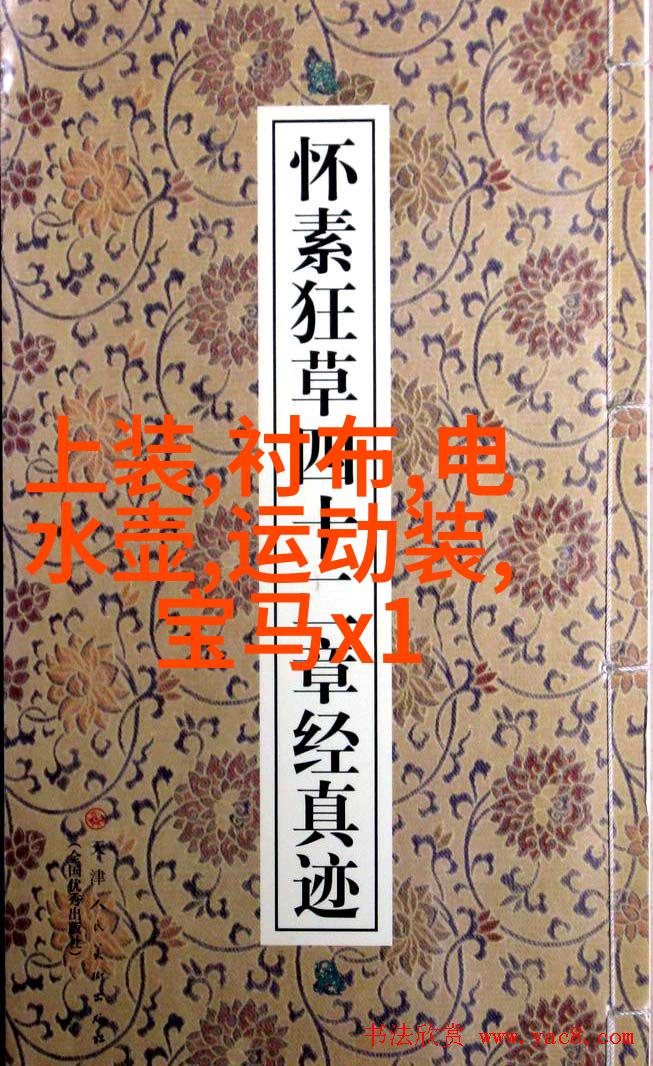 怀素狂草四十二章经真迹
上装,衬布,电
水壶,运动装,
宝马x1
天津人民美术出版社
(全国优秀出版社)
书法欣赏 www.yac8.com